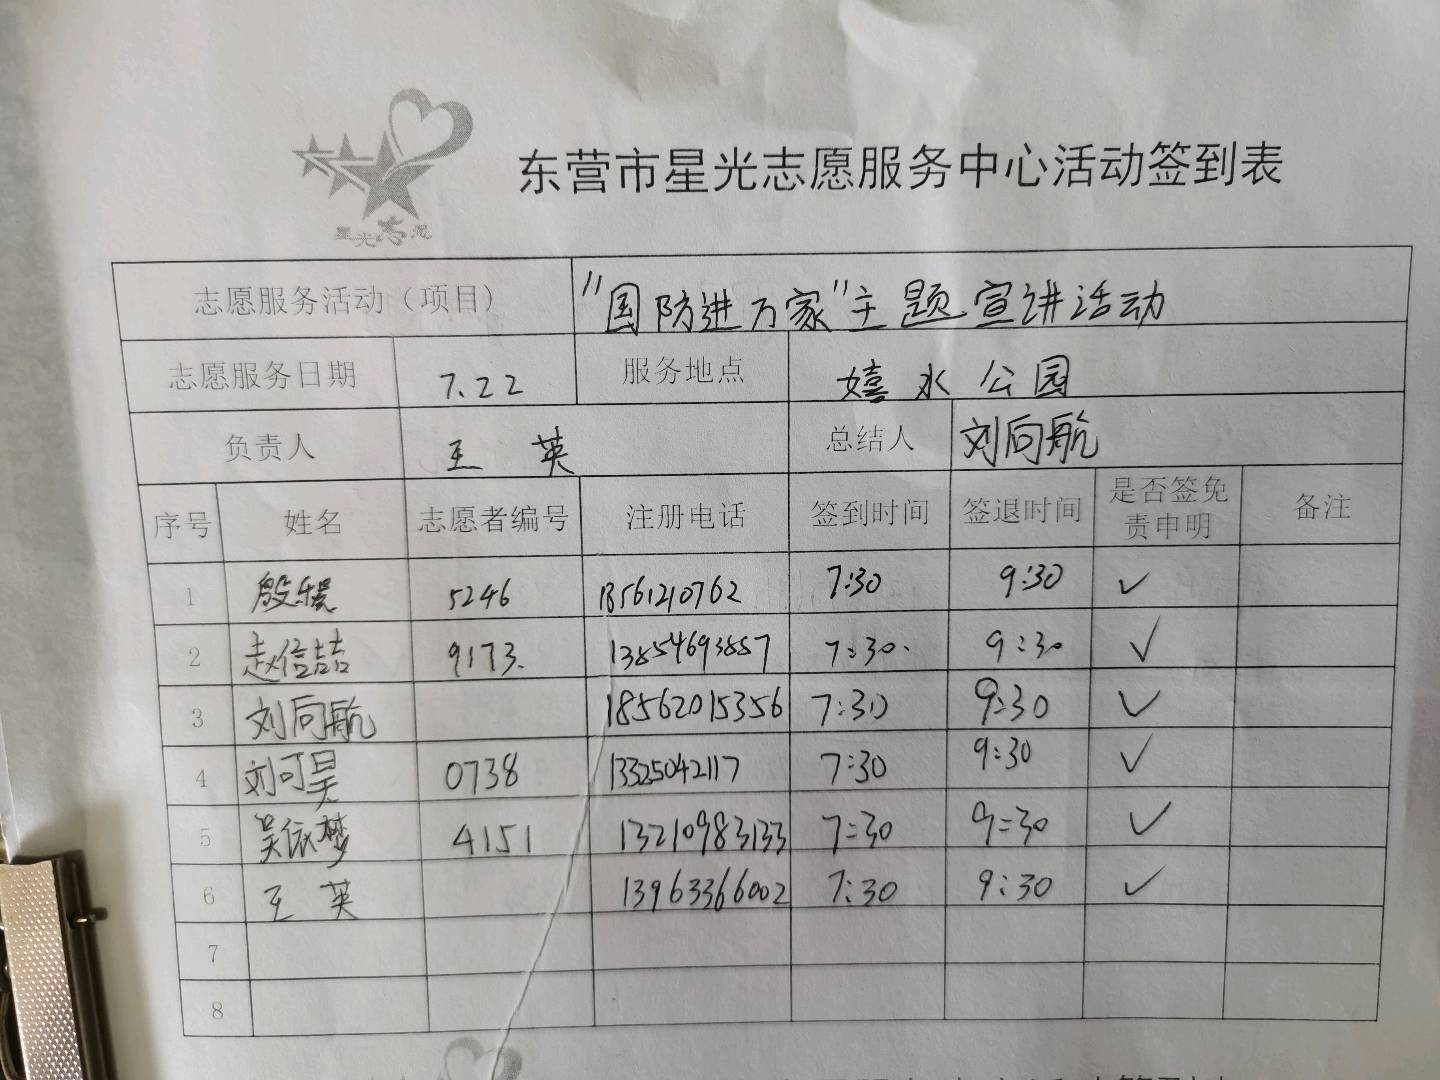 星光志愿
东营市星光志愿服务中心活动签到表
志愿服务活动（项目） "国防进万家"主题宣讲活动
志愿服务日期 7.22 服务地点 嬉水公园
负责人 王英 总结人 刘向航
序号 姓名 志愿者编号 注册电话 签到时间 签退时间 是否签免责申明 备注
1 殷 5246 13561210762 7:30 9:30 ✓
2 赵信喆 9173. 13854693857 7:30. 9:30 ✓
3 刘向航 18562015356 7:30 9:30 ✓
4 刘可昊 0738 13325042117 7:30 9:30 ✓
5 吴依梦 4151 13210983133 7:30 9:30 ✓
6 王英 13963366002 7:30 9:30 ✓
7
8